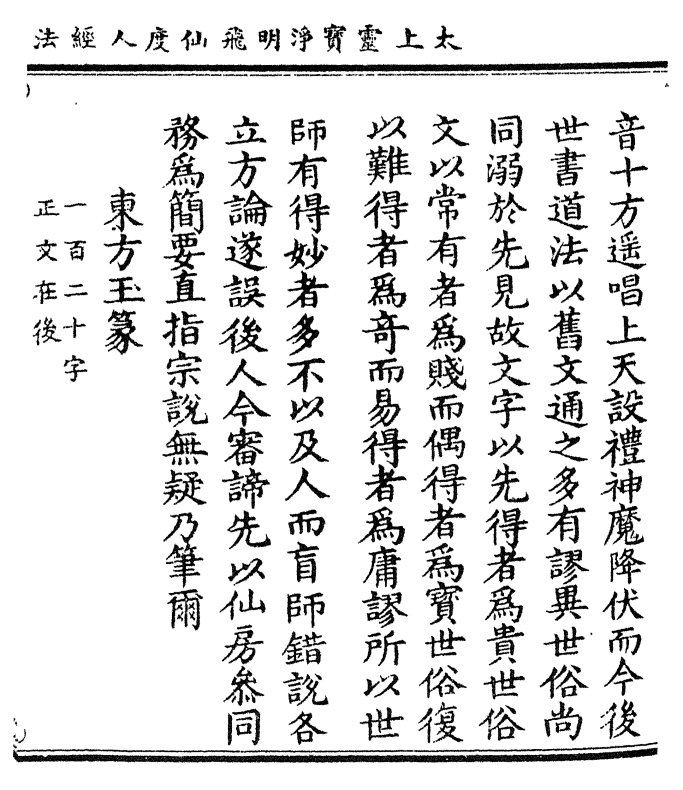 太上靈寶淨明飛仙度人經法
音十方遥唱上天設禮神魔降伏而今後
世書道法以舊文通之多有謬異世俗尚
同溺於先見故文字以先得者爲貴世俗
文以常有者爲賤而偶得者爲寶世俗復
以難得者爲奇而易得者爲庸謬所以世
師有得妙者多不以及人而盲師錯説各
立方論遂誤後人今審諦先以仙房叅同
務爲簡要直指宗説無疑乃筆爾
東方玉篆
一百二十字
正文在後